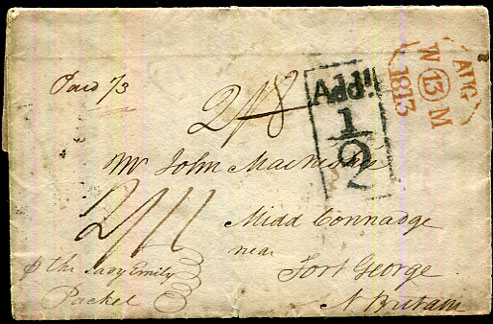 Paid 1/3
2/8
Addl.
1/2
AUG
W 13 M
1813
Mr John
2/11
Midd Connadge
near
Fort George
N Britain
p the Lady Emily
Packet